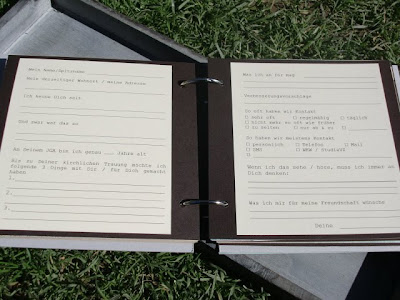 Mein Name/Spitzname
Mein derzeitiger Wohnort / meine Adresse
Ich kenne Dich seit
Und zwar war das so
An Deinem JGA bin ich genau ___ Jahre alt
Bis zu Deiner kirchlichen Trauung möchte ich
folgende 3 Dinge mit Dir / für Dich gemacht
haben
1.
2.
3.
Was ich an Dir mag
Verbesserungsvorschläge
So oft haben wir Kontakt
□ sehr oft □ regelmäßig □ täglich
□ nicht mehr so oft wie früher
□ zu selten □ nur am & zu □
So haben wir meistens Kontakt
□ persönlich □ Telefon □ Mail
□ SMS □ WKW / Studivz □
Wenn ich das sehe / höre, muss ich immer an
Dich denken:
Was ich mir für meine Freundschaft wünsche
Deine